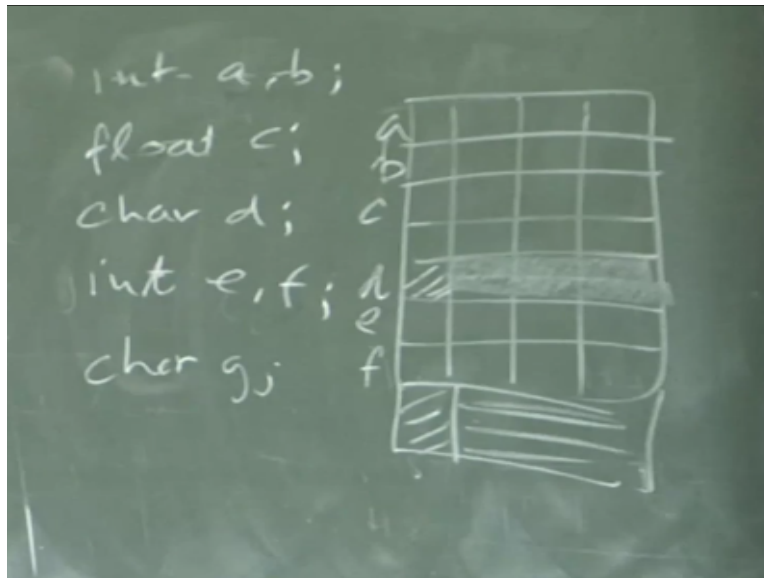 int a,b;
float c;
char d;
int e,f;
char g;
a
b
c
d
e
f